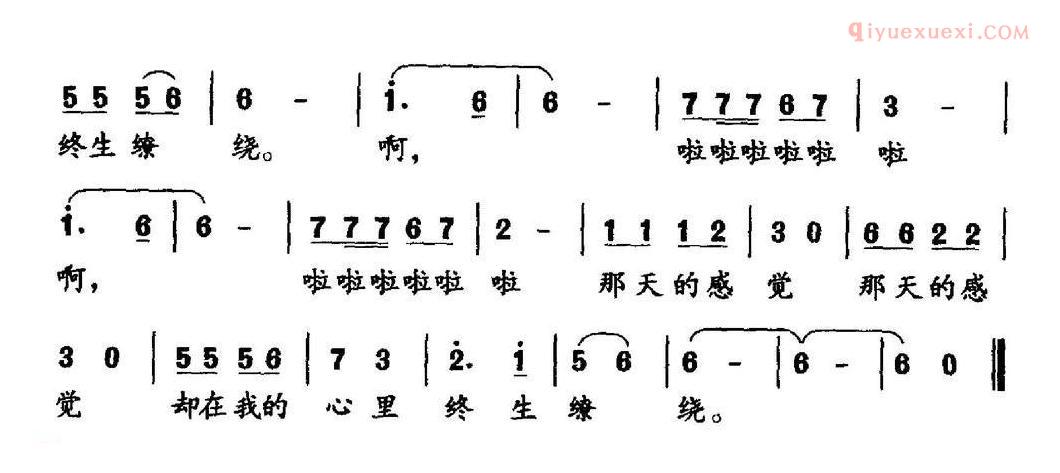 qiyuexuexi.COM
5 5 5 6 | 6 - | i. 6 | 6 - | 7 7 7 6 7 | 3 - |
终生缭 绕。 啊, 啦啦啦啦啦 啦
i. 6 | 6 - | 7 7 7 6 7 | 2 - | 1 1 1 2 | 3 0 | 6 6 2 2 |
啊, 啦啦啦啦啦 啦 那天的感 觉 那天的感
3 0 | 5 5 5 6 | 7 3 | 2. i | 5 6 | 6 - | 6 - | 6 0 ‖
觉 却在我的 心里 终 生 缭 绕。